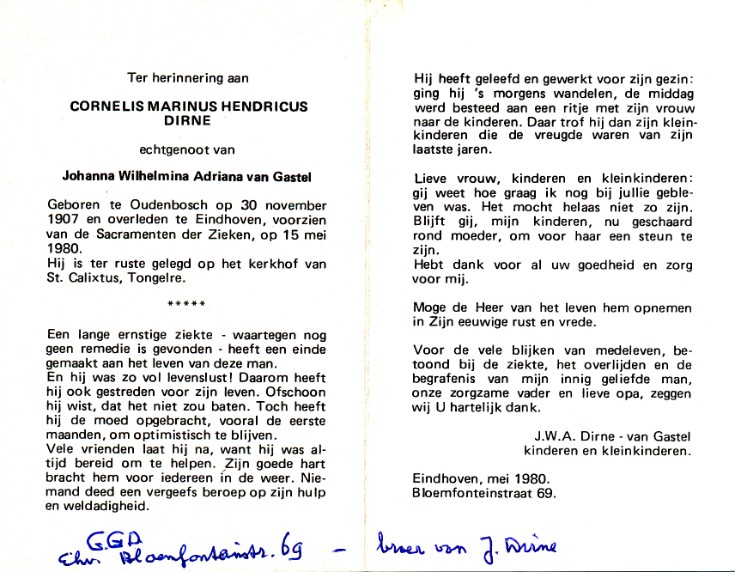 Ter herinnering aan
CORNELIS MARINUS HENDRICUS
DIRNE
echtgenoot van
Johanna Wilhelmina Adriana van Gastel
Geboren te Oudenbosch op 30 november
1907 en overleden te Eindhoven, voorzien
van de Sacramenten der Zieken, op 15 mei
1980.
Hij is ter ruste gelegd op het kerkhof van
St. Calixtus, Tongelre.
*****
Een lange ernstige ziekte - waartegen nog
geen remedie is gevonden - heeft een einde
gemaakt aan het leven van deze man.
En hij was zo vol levenslust! Daarom heeft
hij ook gestreden voor zijn leven. Ofschoon
hij wist, dat het niet zou baten. Toch heeft
hij de moed opgebracht, vooral de eerste
maanden, om optimistisch te blijven.
Vele vrienden laat hij na, want hij was al-
tijd bereid om te helpen. Zijn goede hart
bracht hem voor iedereen in de weer. Nie-
mand deed een vergeefs beroep op zijn hulp
en weldadigheid.
Hij heeft geleefd en gewerkt voor zijn gezin:
ging hij 's morgens wandelen, de middag
werd besteed aan een ritje met zijn vrouw
naar de kinderen. Daar trof hij dan zijn klein-
kinderen die de vreugde waren van zijn
laatste jaren.
Lieve vrouw, kinderen en kleinkinderen:
gij weet hoe graag ik nog bij jullie geble-
ven was. Het mocht helaas niet zo zijn.
Blijft gij, mijn kinderen, nu geschaard
rond moeder, om voor haar een steun te
zijn.
Hebt dank voor al uw goedheid en zorg
voor mij.
Moge de Heer van het leven hem opnemen
in Zijn eeuwige rust en vrede.
Voor de vele blijken van medeleven, be-
toond bij de ziekte, het overlijden en de
begrafenis van mijn innig geliefde man,
onze zorgzame vader en lieve opa, zeggen
wij U hartelijk dank.
J.W.A. Dirne - van Gastel
kinderen en kleinkinderen.
Eindhoven, mei 1980.
Bloemfonteinstraat 69.
G.GD
Ehv. Bloemfonteinstr. 69 - broer van J. Dirne